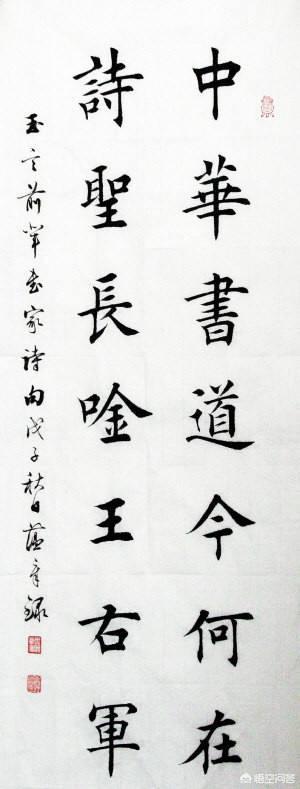 中華書道今何在
詩聖長唫王右軍
玉言前輩書家詩句戊子秋日蕴章録
悟空问答